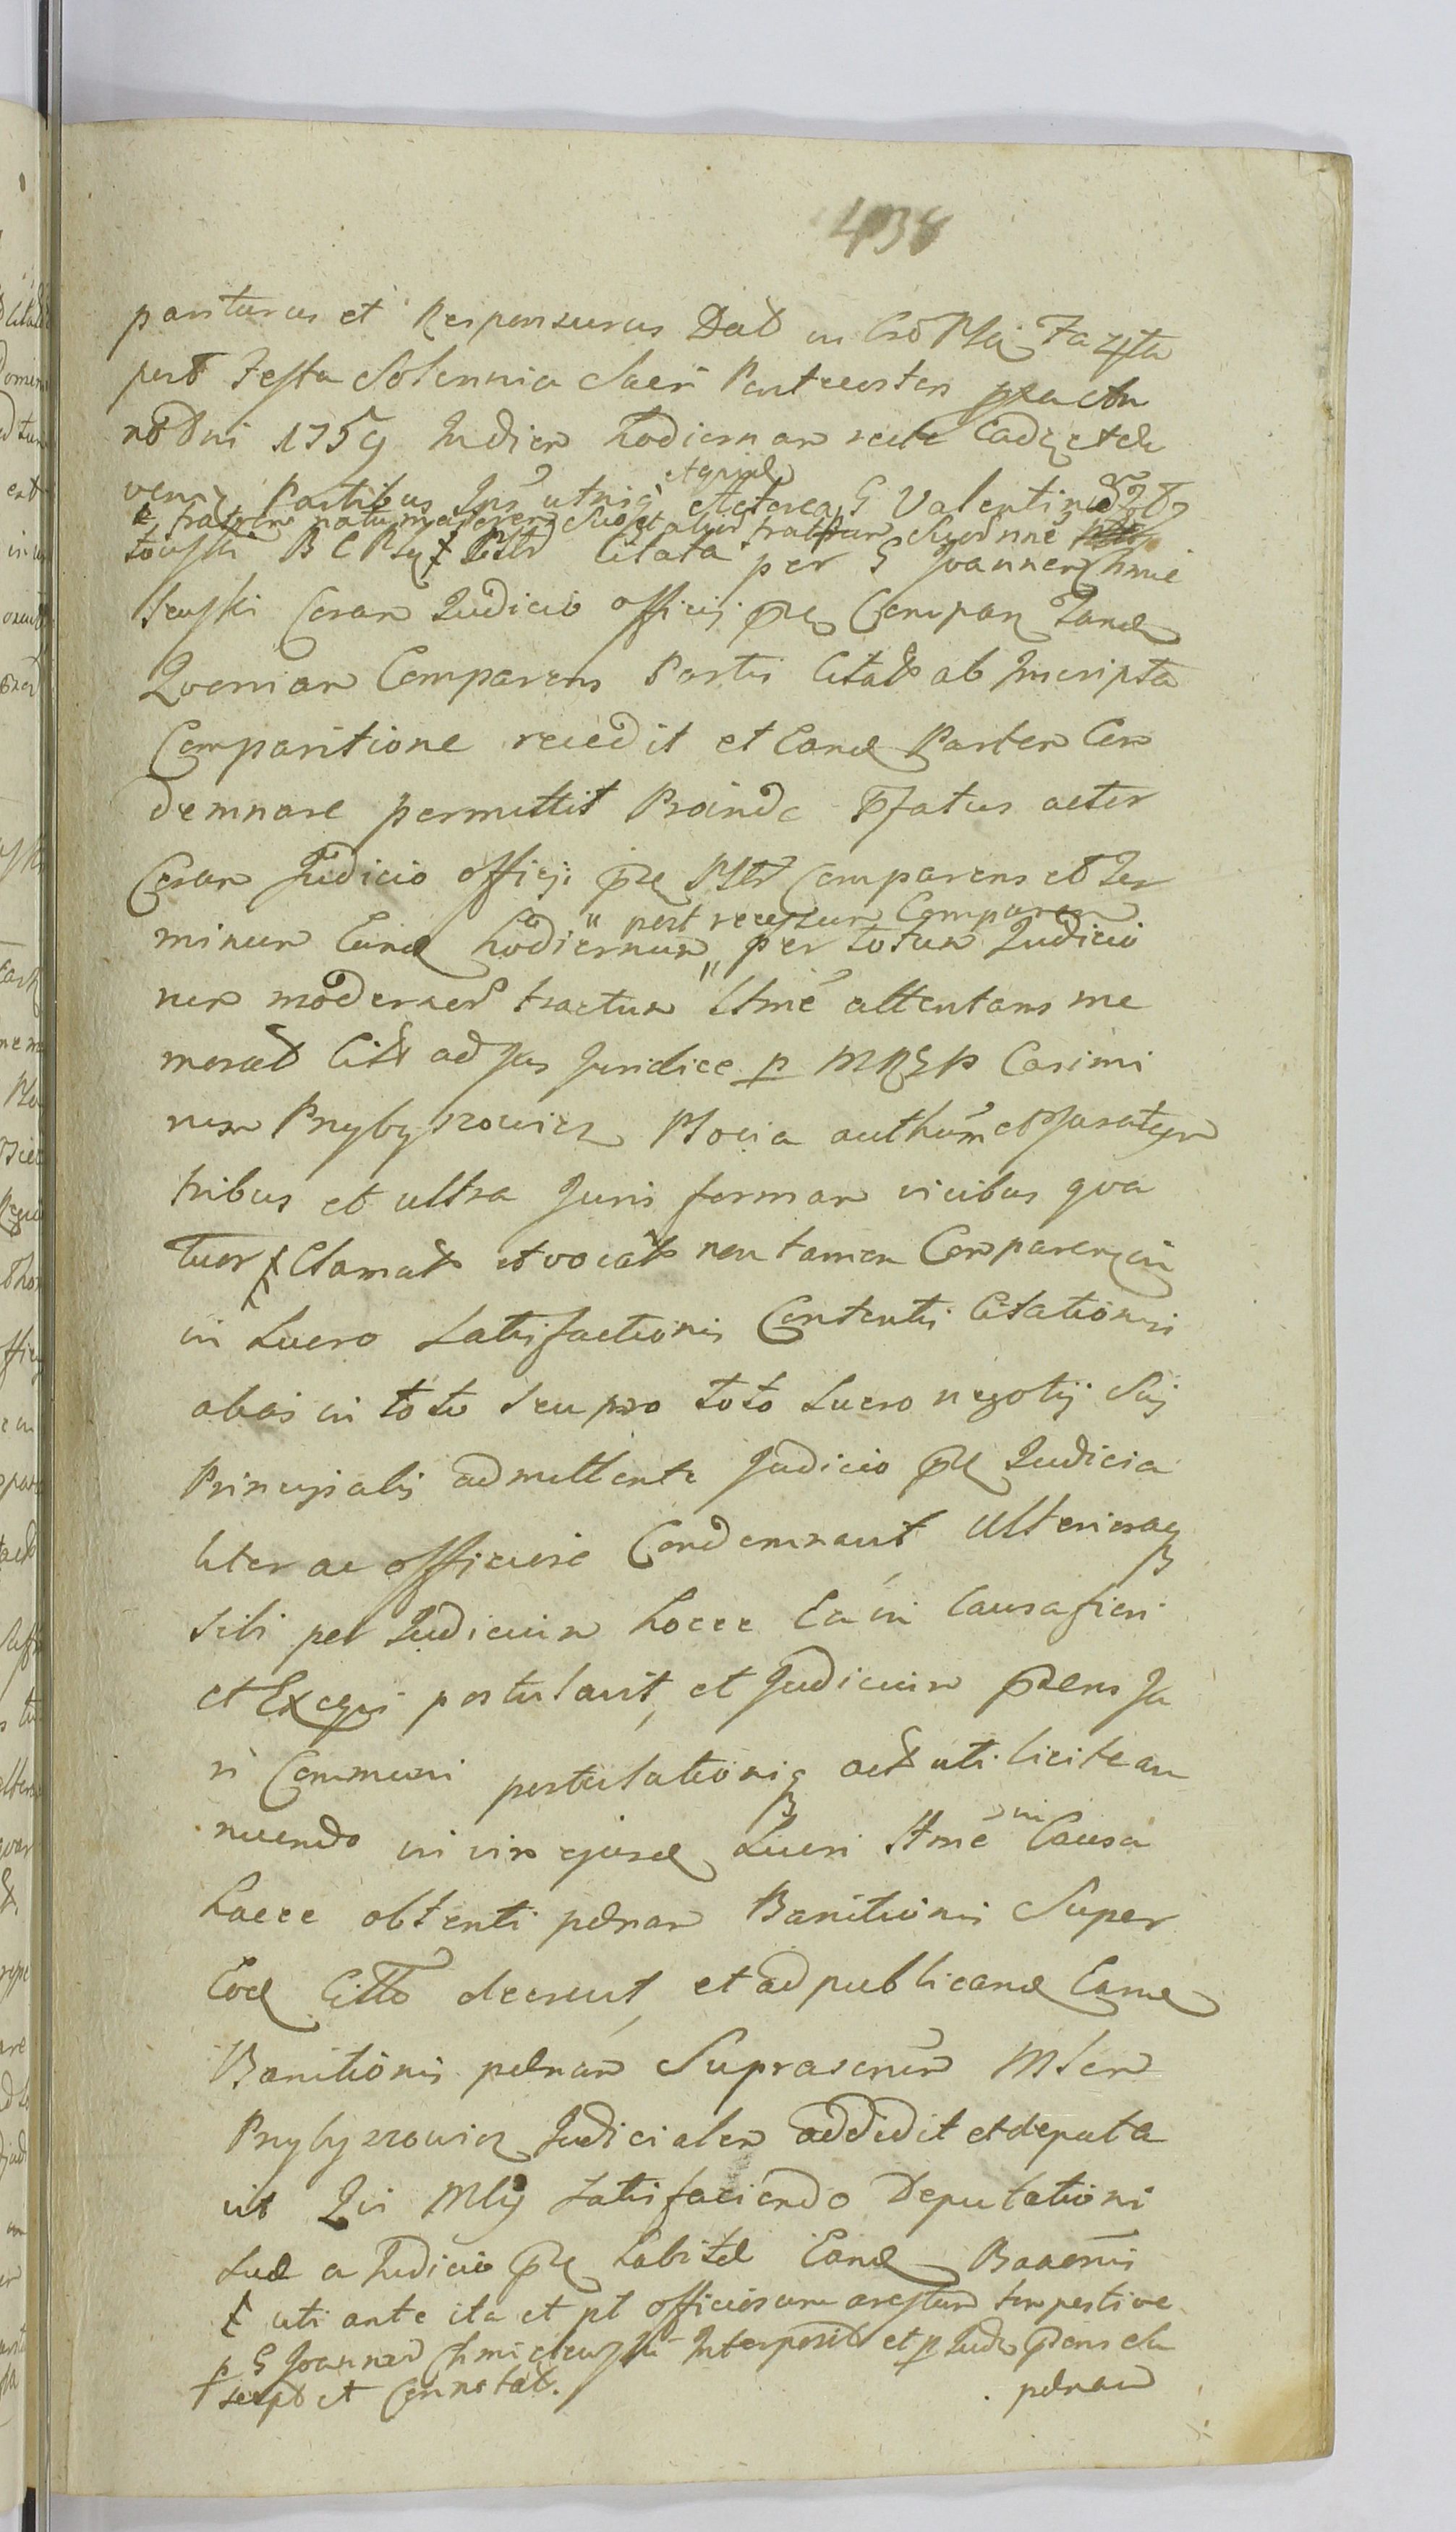 438
pariturus et Responsurus Dat in Cro Plã Fa 4ta
post Festa Solennia Sacri Pentecostes
A͠o D͠ni 1759 In diem hodiernam recte Cadez et de
venien Partibus Ips utrisq et Actorea G Valentino
et quid
fratrem natu majorem Suo et aliud fratrum
Citata per G Joannem Chmie
lewski Coram Judicio officij p͠n͠t Compar Tand
Quoniam Comparens Partis Citatæ ab Inscripta
Comparitione recedit et Eand Partem Con
demnare permittit Proinde P͠fatus actor
Coram Judicio officij p͠n͠t Plr Comparens et Ter
" post recessum Comparen
minum Eund hodiernum " per totum Judicio
rum modernor tractum ltme attentans me
morat Citt ad Jus Juridice p MRGP Casimi
rum Przybyszowicz Ploci͠a auth͠um et Juratum
tribus et ultra Juris formam vicibus qva
tuor ⱡ Clamat et vocat non tamen Comparen in
in Lucro Satisfactionis Contentis Citationis
alias in toto seu pro toto Lucro negotij Sui
Principalis admittente Judicio p͠n͠t Judicia
liter ac officiose Condemnavit, Ulterioraq
sibi per Judicium hocce Ea in Causa fieri
et Exequi postulavit, et Judicium p͠n͠s Ju
ri Communi postulationiq act uti licite an
nuendo in vim ejusd Lucri ltme in Causa
hacce obtenti pœnam Banitionis Super
Eod Citto decrevit, et ad publicand Eamd
Banitionis pœnam Suprascrip͠m Mlem
Przybyszowicz Judicialem addidit et deputa
vit Qui Mlij satisfaciendo Deputationi
Suæ a Judicio p͠n͠t habitæ Eand Baae͠nis
ⱡ uti ante ita et pt officiosum arestum tempestive
p G Joannem Chmielewski Interposit et p Jud p͠n͠s
script et Connotat.
pœnam